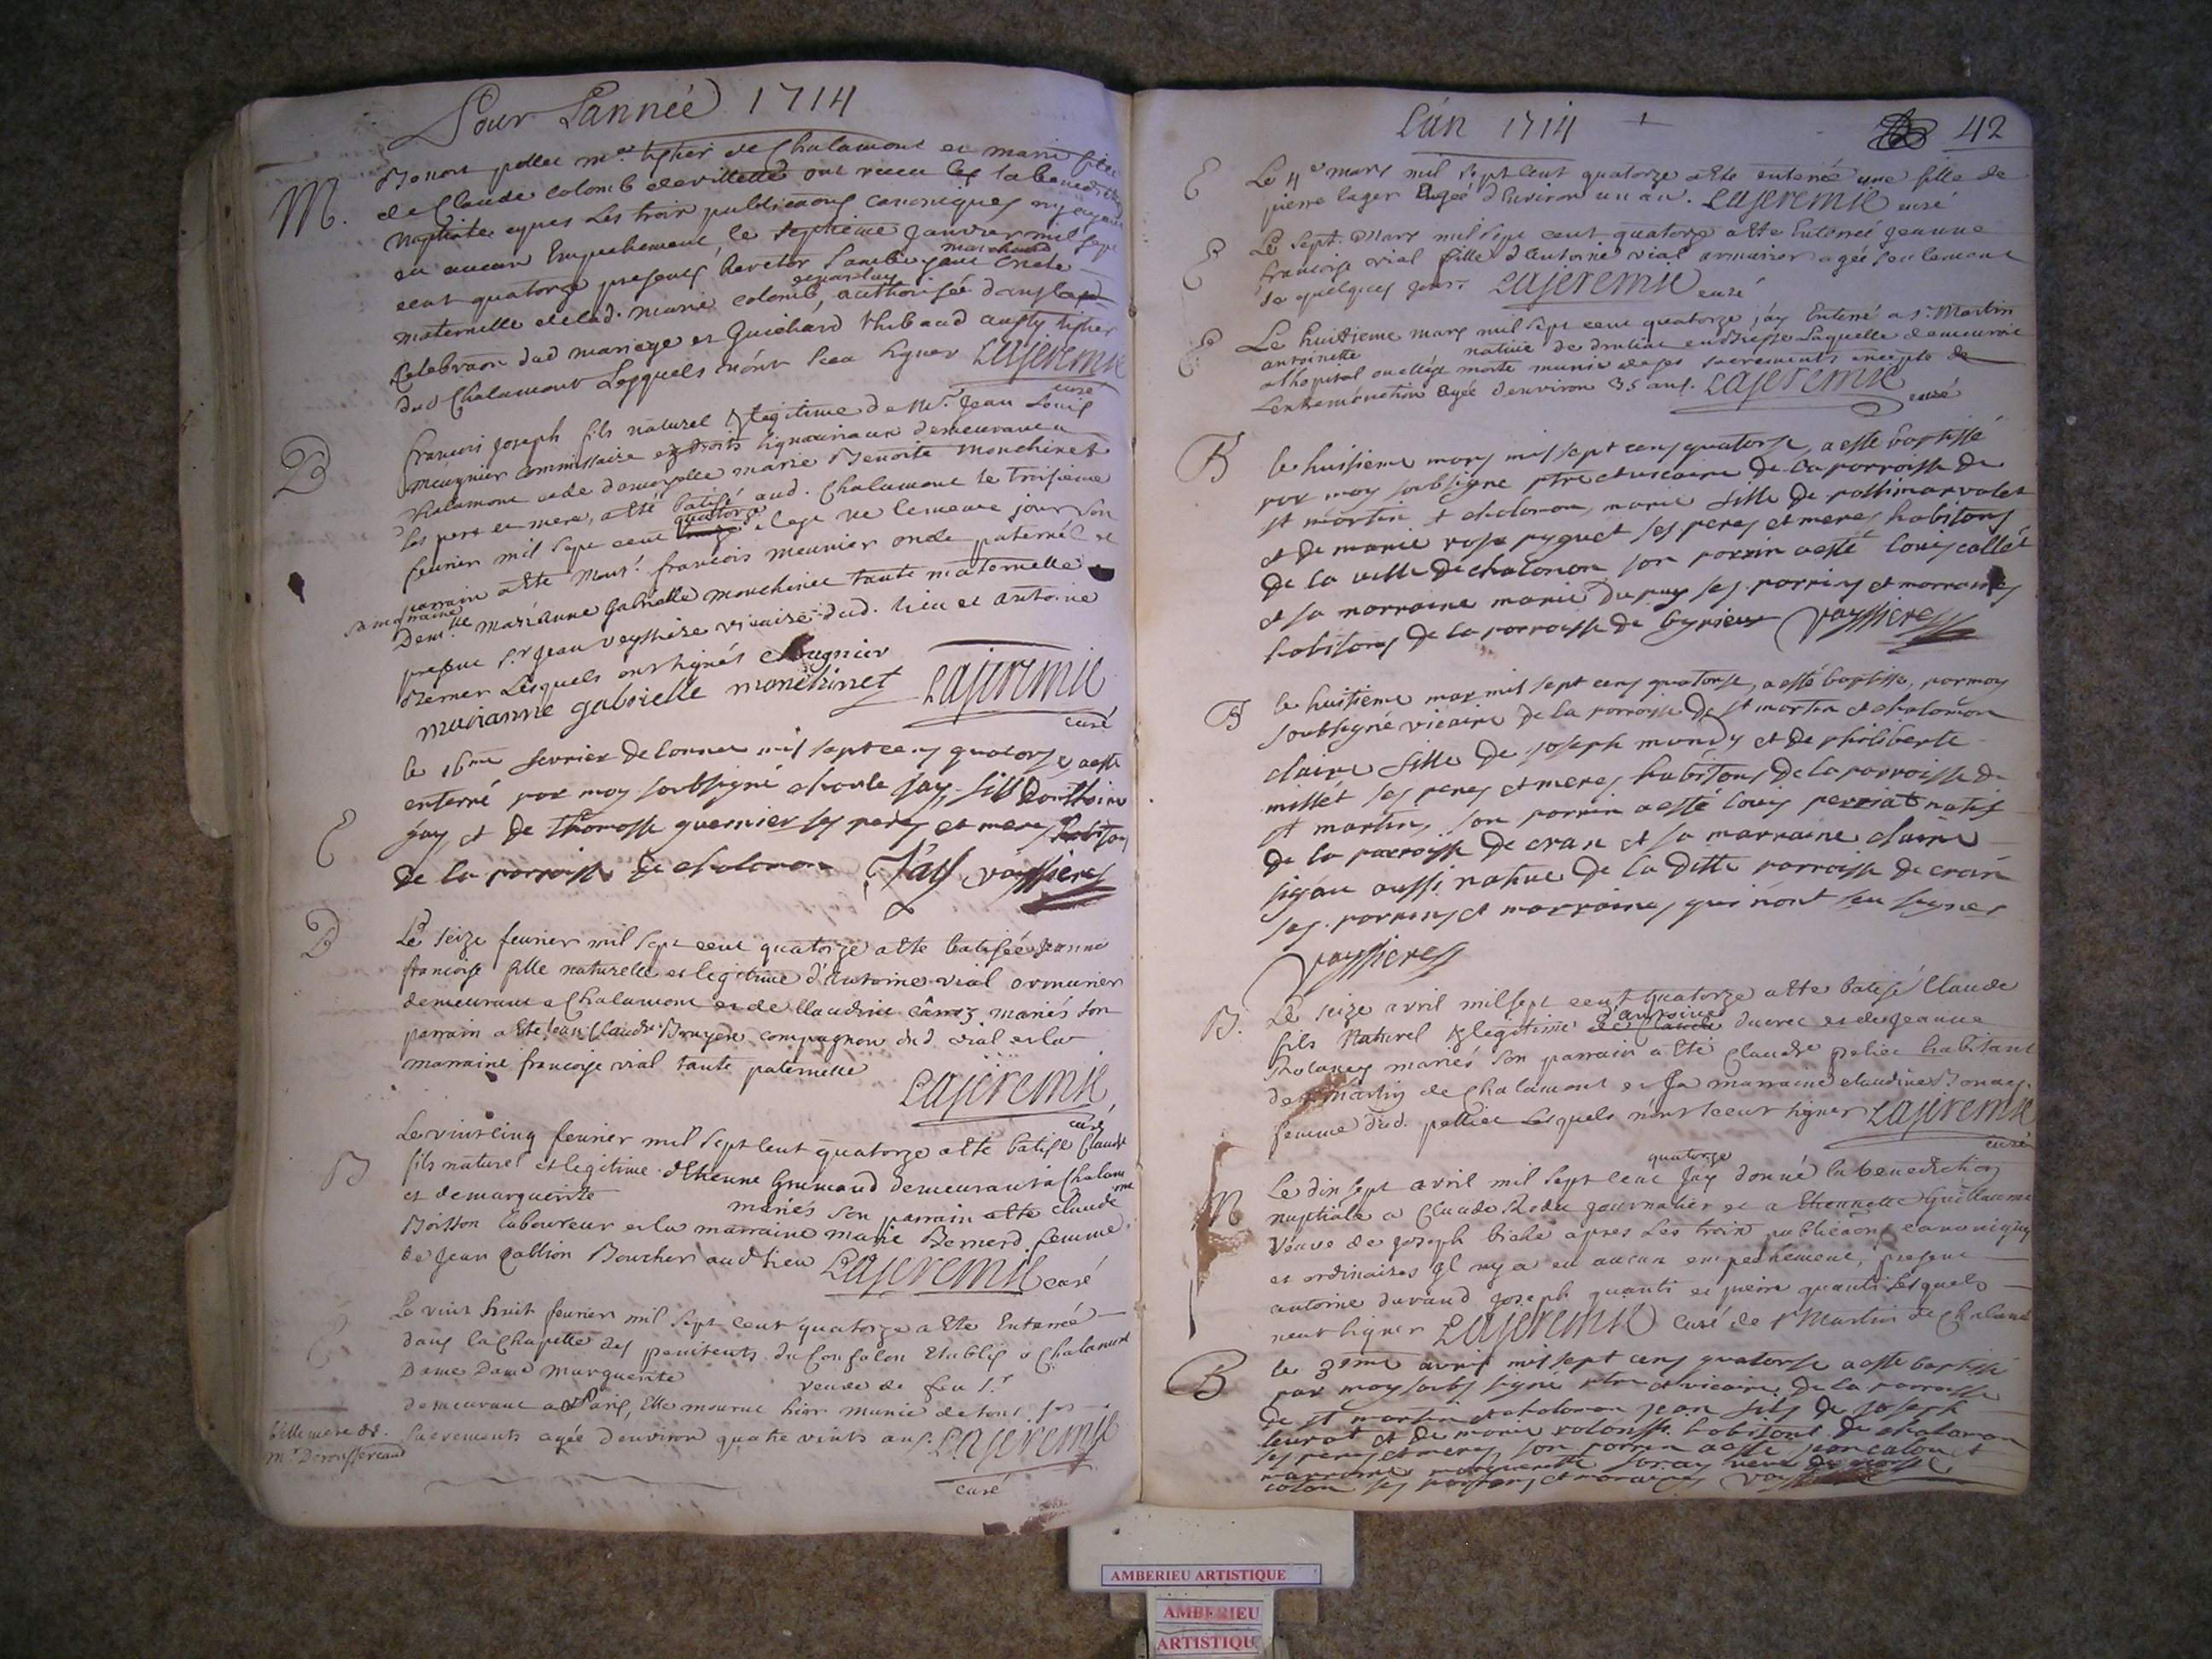 Pour Lannée 1714
M. Benoit pollet me. tissier de Chalamont et marie fille
de Claude Colomb de villette ont receu les la benediction
nuptiale apres les trois publicaons canoniques ny ayant
eu aucun Empechement, le septieme Janvier mil sept
marchand
cent quatorze presents hector oncle
maternelle de lad. marie Colomb, authorisée
Celebraon dud mariage et Guichard thibaud aussy tissier
dud Chalamont Lesquels n'ont sceu signer Lajeremie
curé
B francois Joseph fils naturel & legitime de Mr. Jean Louis
meugnier Commissaire ez droits signeuriaux demeurant a
Chalamont et de damoyselle marie Benoite monchinet
ses pere et mere, a été batisé aud. Chalamont le troisieme
quatorze
fevrier mil sept cent il est né le meme jour son
parrain a été Monsr. francois meunier oncle paternel et
sa marraine
Demlle. marianne Gabrielle monchinet tante maternelle
present Sr. Jean veyssiere vicaire dud. lieu et antoine
Berner Lesquels ont signés Meugnier
marianne gabrielle monchinet Lajeremie
curé
le 16me fevrier de lannee mil sept cens quatorze, a esté
enterré par moy soubsigné claude jay, fils danthoine
E jay et de thomasse guernier ses peres et meres habitans
de la parroisse de chalamon vayssieres
B Le seize fevrier mil sept cent quatorze a été batisée Jeanne
francoise fille naturelle et legitime d'Antoine vial armurier
demeurant a Chalamont et de Claudine mariés son
parrain a été Jean Claude Bruyere compagnon dud vial et la
marraine francoise vial tante paternelle
Lajeremie
curé
Le vint cinq fevrier mil sept cent quatorze a été batisé Claude
B fils naturel et legitime d'Etienne Grumaud demeurant a Chalam
ont
et de marguerite mariés son parrain a été Claude
Boisson laboureur et la marraine marie Bernerd femme
de Jean Boucher aud lieu Lajeremie curé
Le vint huit fevrier mil sept cent quatorze a été Enterrée
dans la Chapelle des penitents du Confalon Etablis a Chalamont
Dame Dame Marguerite veuve de feu Sr.
demeurant a Paris, Elle mourut hier munie de tous ses
sacrements agée d'environ quatre vints ans. Lajeremie
belle mere de.
Mr
curé
Lán 1714 42
E Le 4e mars mil sept cent quatorze a été enterrée une fille de
pierre lager agée d'Environ un an. Lajeremie curé
E Le sept. Mars mil sept cent quatorze a été Enterrée Jeanne
francoise vial fille d'Antoine vial armurier agée seulement
de quelques jours Lajeremie curé
E Le huitieme mars mil sept cent quatorze jáy Enterré a St. Martin
antoinette native de en Bresse Laquelle demeuroit
a lhopital ou elle est morte munie de ses sacrements excepté de
Lextremonction agée denviron 35 ans. Lajeremie
curé
B le huitieme mars mil sept cens quatorse, a esté baptissé
par moy soubsigné ptre et vicaire de la parroisse de
st martin de chalamon, marie fille de
et de marie rose puguet ses peres et meres habitans
de la ville de chalamon son parrin a esté louis collet
et sa marraine marie Dupuy ses parrins et marraines
habitans de la parroisse de vayssieres
B le huitieme mars mil sept cens quatorse, a esté baptisse, par moy
soubsigné vicaire de la parroisse de st martin de chalamon
claire fille de joseph mundy et de philiberte
millet ses peres et meres habitans de la parroisse de
st martin, son parrin a esté louis perriat natif
de la parroisse de cran et sa marraine claire
aussi native de la ditte parroisse de cran
ses parrins et marraines qui n'ont seu signer
vayssieres
B. Le seize avril mil sept cent quatorze a été batisé Claude
d'antoine
fils Naturel & legitime de Claude ducrec et de Jeanne
Rolancy mariés son parrain a été Claude pelier habitant
de St martin de Chalamont et sa marraine claudine
femme dud. pellier Lesquels n'ont sceut signer Lajeremie
curé
quatorze
M Le dix sept avril mil sept cent Jay donné la benediction
nuptiale a Claude Rodu journalier et a Etiennette Guillaume
veuve de Joseph biché apres les trois publicaons canoniques
et ordinaires Il ny a eu aucun empechement, present
antoine durand Joseph quanti et pierre quanti Lesquels
n'ent signer Lajeremie curé de St Martin de Chalamo
B le 3eme avril mil sept cens quatorse a esté baptissé
par moy soubs signé ptre et vicaire de la parroisse
de st martin de chalamon jean fils de joseph
et de marie habitant de chalamon
ses peres et meres, son parrin a esté jean colon et
marraine marguerette
colon ses parrins et maraines
AMBERIEU ARTISTIQUE
AMBERIEU
ARTISTIQU